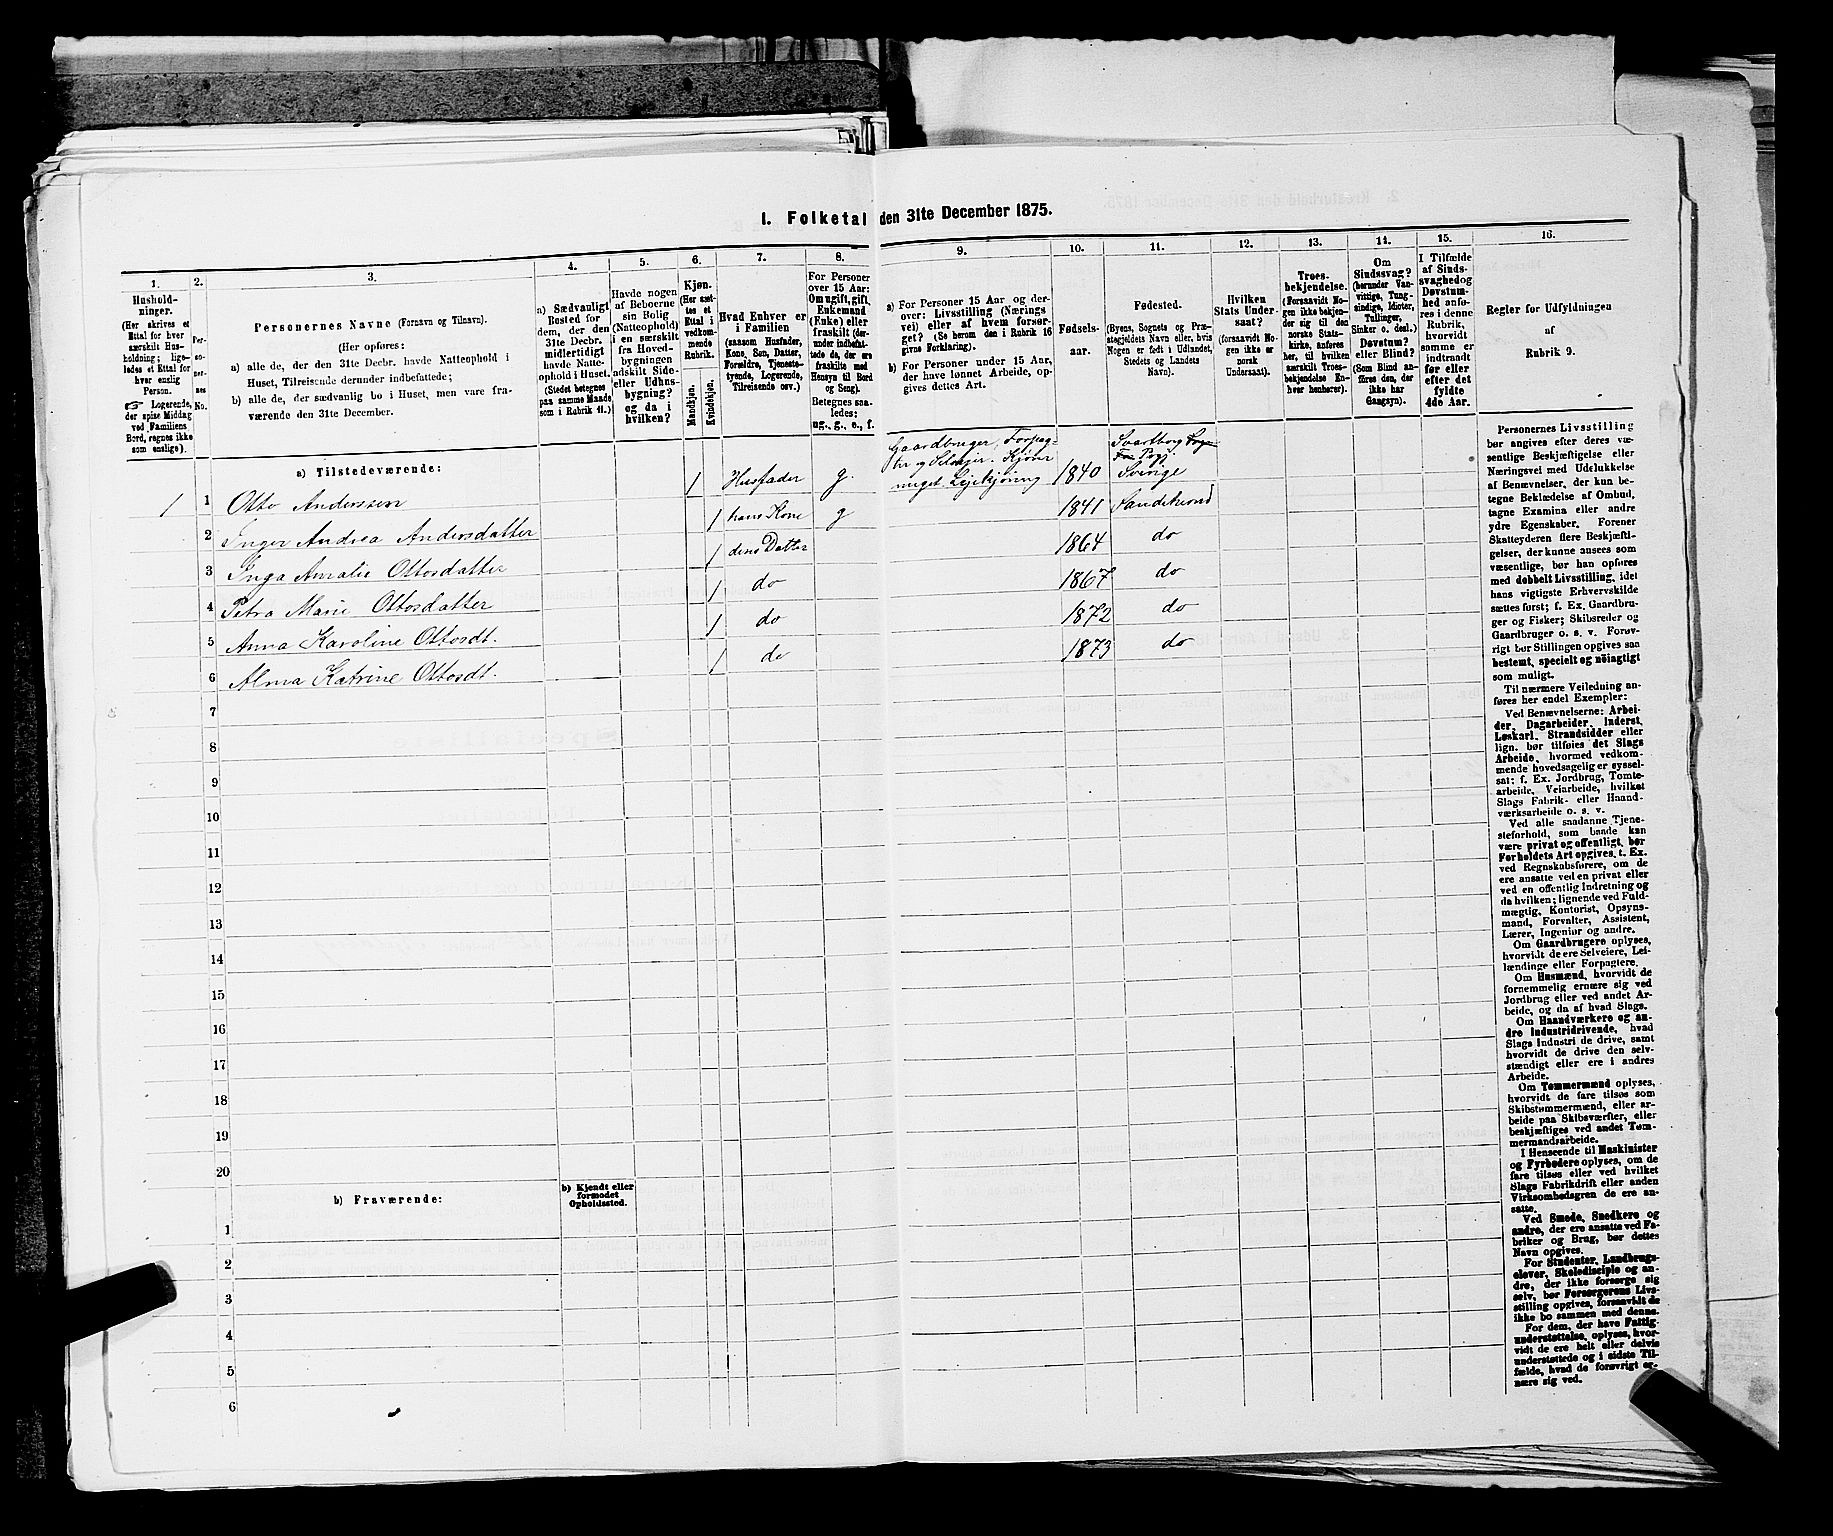 1. Folketal den 31te December 1875.
1.
Hushold-
ninger.
(Her skrives et
Ettal for hver
særskilt Hus-
holdning; lige-
ledes et Ettal for
hver enslig
Person.
☞ Logerende,
der spise Middag
ved Familiens
Bord, regnes ikke
som enslige).
2.
Per-
so-
ner-
nes
No.
3.
Personernes Navne (Fornavn og Tilnavn).
(Her opføres:
a) alle de, der den 31te Decbr. havde Natteophold i
Huset, Tilreisende derunder indbefattede;
b) alle de, der sædvanlig bo i Huset, men vare fra-
værende den 31te December.
4.
a) Sædvanligt
Bosted for
dem, der den
31te Decbr.
midlertidigt
havde Natte-
ophold i Huset.
(Stedet betegnes
paa samme Maade
som i Rubrik 11.)
5.
Havde nogen
af Beboerne
sin Bolig
(Natteophold)
i en særskilt
fra Hoved-
bygningen
adskilt Side-
eller Udhus-
bygning?
og da i
hvilken?
6.
Kjøn.
(Her sæt-
tes et
Ettal i
vedkom-
mende
Rubrik.
Mandkjøn.
Kvindekjøn.
7.
Hvad Enhver er
i Familien
(saasom Husfader,
Kone, Søn, Datter,
Forældre, Tjeneste-
tyende, Logerende,
Tilreisende osv.)
8.
For Personer
over 15 Aar:
Om ugift, gift,
Enkemand
(Enke) eller
fraskilt (der-
under indbefat-
tede de, der ere
fraskilte med
Hensyn til Bord
og Seng).
Betegnes saa-
ledes:
ug., g., e., f.
9.
a) For Personer 15 Aar og der-
over: Livsstilling (Nærings
vei) eller af hvem forsør-
get? (Se herom den i Rubrik 16
givne Forklaring).
b) For Personer under 15 Aar,
der have lønnet Arbeide, op-
gives dettes Art.
10.
Fødsels-
aar.
11.
Fødested.
(Byens, Sognets og Præ-
stegjeldets Navn eller, hvis
Nogen er født i Udlandet,
Stedets og Landets
Navn).
12.
Hvilken
Stats Under-
saat?
(forsaavidt No-
gen ikke er
norsk
Undersaat).
13.
Troes-
bekjendelse.
(Forsaavidt No-
gen ikke bekjen-
der sig til den
norske Stats-
kirke, anføres
her, til hvilken
særskilt Troes-
bekjendelse En-
hver henhører).
14.
Om
Sindssvag?
(herunder Van-
vittige, Tung-
sindige, Idioter,
Tullinger,
Sinker o. desl.)
Døvstum?
eller Blind?
(Som Blind an-
føres den, der
ikke har
Gangsyn).
15.
I Tilfælde
af Sinds-
svaghed og
Døvstum-
hed anfø-
res i denne
Rubrik,
hvorvidt
samme er
indtraadt
før eller
efter det
fyldte
4de Aar.
16.
Regler for Udfyldningen
af
Rubrik 9.
a) Tilstedeværende:
1 1 Otto Anderssen 1 Husfader g. Gaardbruger, Forpag-
ter og Selveier. 1840 Sverige
2 Inger Andrea Andersdatter 1 hans Kone g 1841
3 Inga Amalie Ottosdatter 1 deres Datter 1864 do
4 Petra Marie Ottosdatter 1 do 1867 do
5 Anna Karoline Ottosdt. 1 do 1872 do
6 Alma Katrine Ottosdt. 1 do 1873 do
7
8
9
10
11
12
13
14
15
16
17
18
19
20
b) Fraværende:
b) Kjendt eller
formodet
Opholdssted.
1
2
3
4
5
6
Personernes Livsstilling
bør angives efter deres væ-
sentlige Beskjæftigelse eller
Næringsvei med Udelukkelse
af Benævnelser, der kun be-
tegne Beklædelse af Ombud,
tagne Examina eller andre
ydre Egenskaber. Forener
Skatteyderen flere Beskjæfti-
gelser, der kunne ansees som
væsentlige, bør han opføres
med dobbelt Livsstilling, idet
hans vigtigste Erhvervskilde
sættes først; f. Ex. Gaardbru-
ger og Fisker; Skibsreder og
Gaardbruger o. s. v. Forøv-
rigt bør Stillingen opgives saa
bestemt, specielt og nøiagtigt
som muligt.
Til nærmere Veiledning an-
føres her endel Exempler:
Ved Benævnelserne: Arbei-
der, Dagarbeider, Inderst,
Løskarl, Strandsidder eller
lign. bør tilføies det Slags
Arbeide, hvormed vedkom-
mende hovedsagelig er syssel-
sat; f. Ex. Jordbrug, Tomte-
arbeide, Veiarbeide, hvilket
Slags Fabrik- eller Haand-
værksarbeide o. s. v.
Ved alle saadanne Tjene-
steforhold, som baade kan
være privat og offentligt, bør
Forholdets Art opgives, f. Ex.
ved Regnskabsførere, om de
ere ansatte ved en privat eller
ved en offentlig Indretning og
da hvilken; lignende ved Fuld-
mægtig, Kontorist, Opsyns-
mand, Forvalter, Assistent,
Lærer, Ingeniør og andre.
Om Gaardbrugere oplyses,
hvorvidt de ere Selveiere, Lei-
lændinge eller Forpagtere.
Om Husmænd, hvorvidt de
fornemmelig ernære sig ved
Jordbrug eller ved andet Ar-
beide, og da af hvad Slags.
Om Haandværkere og an-
dre Industridrivende, hvad
Slags Industri de drive, samt
hvorvidt de drive den selv-
stændigt eller ere i andres
Arbeide.
Om Tømmermænd oplyses,
hvorvidt de fare tilsøs som
Skibstømmermænd, eller ar-
beide paa Skibsværfter, eller
beskjæftiges ved andet Tøm-
mermandsarbeide.
I Henseende til Maskinister
og Fyrbødere oplyses, om de
fare tilsøs eller ved hvilket
Slags Fabrikdrift eller anden
Virksomhedsgren de ere an-
satte.
Ved Smede, Snedkere og
andre, der ere ansatte ved Fa-
briker og Brug, bør dettes
Navn opgives.
For Studenter, Landbrugs-
elever, Skoledisciple og an-
dre, der ikke forsørge sig
selv, bør Forsørgerens Livs-
stilling opgives, forsaavidt de
ikke bo sammen med denne.
For dem, der have Fattig-
understøttelse, oplyses, hvor-
vidt de ere helt eller delvis
understøttede og i sidste Til-
fælde, hvad de forøvrigt er-
nære sig ved.